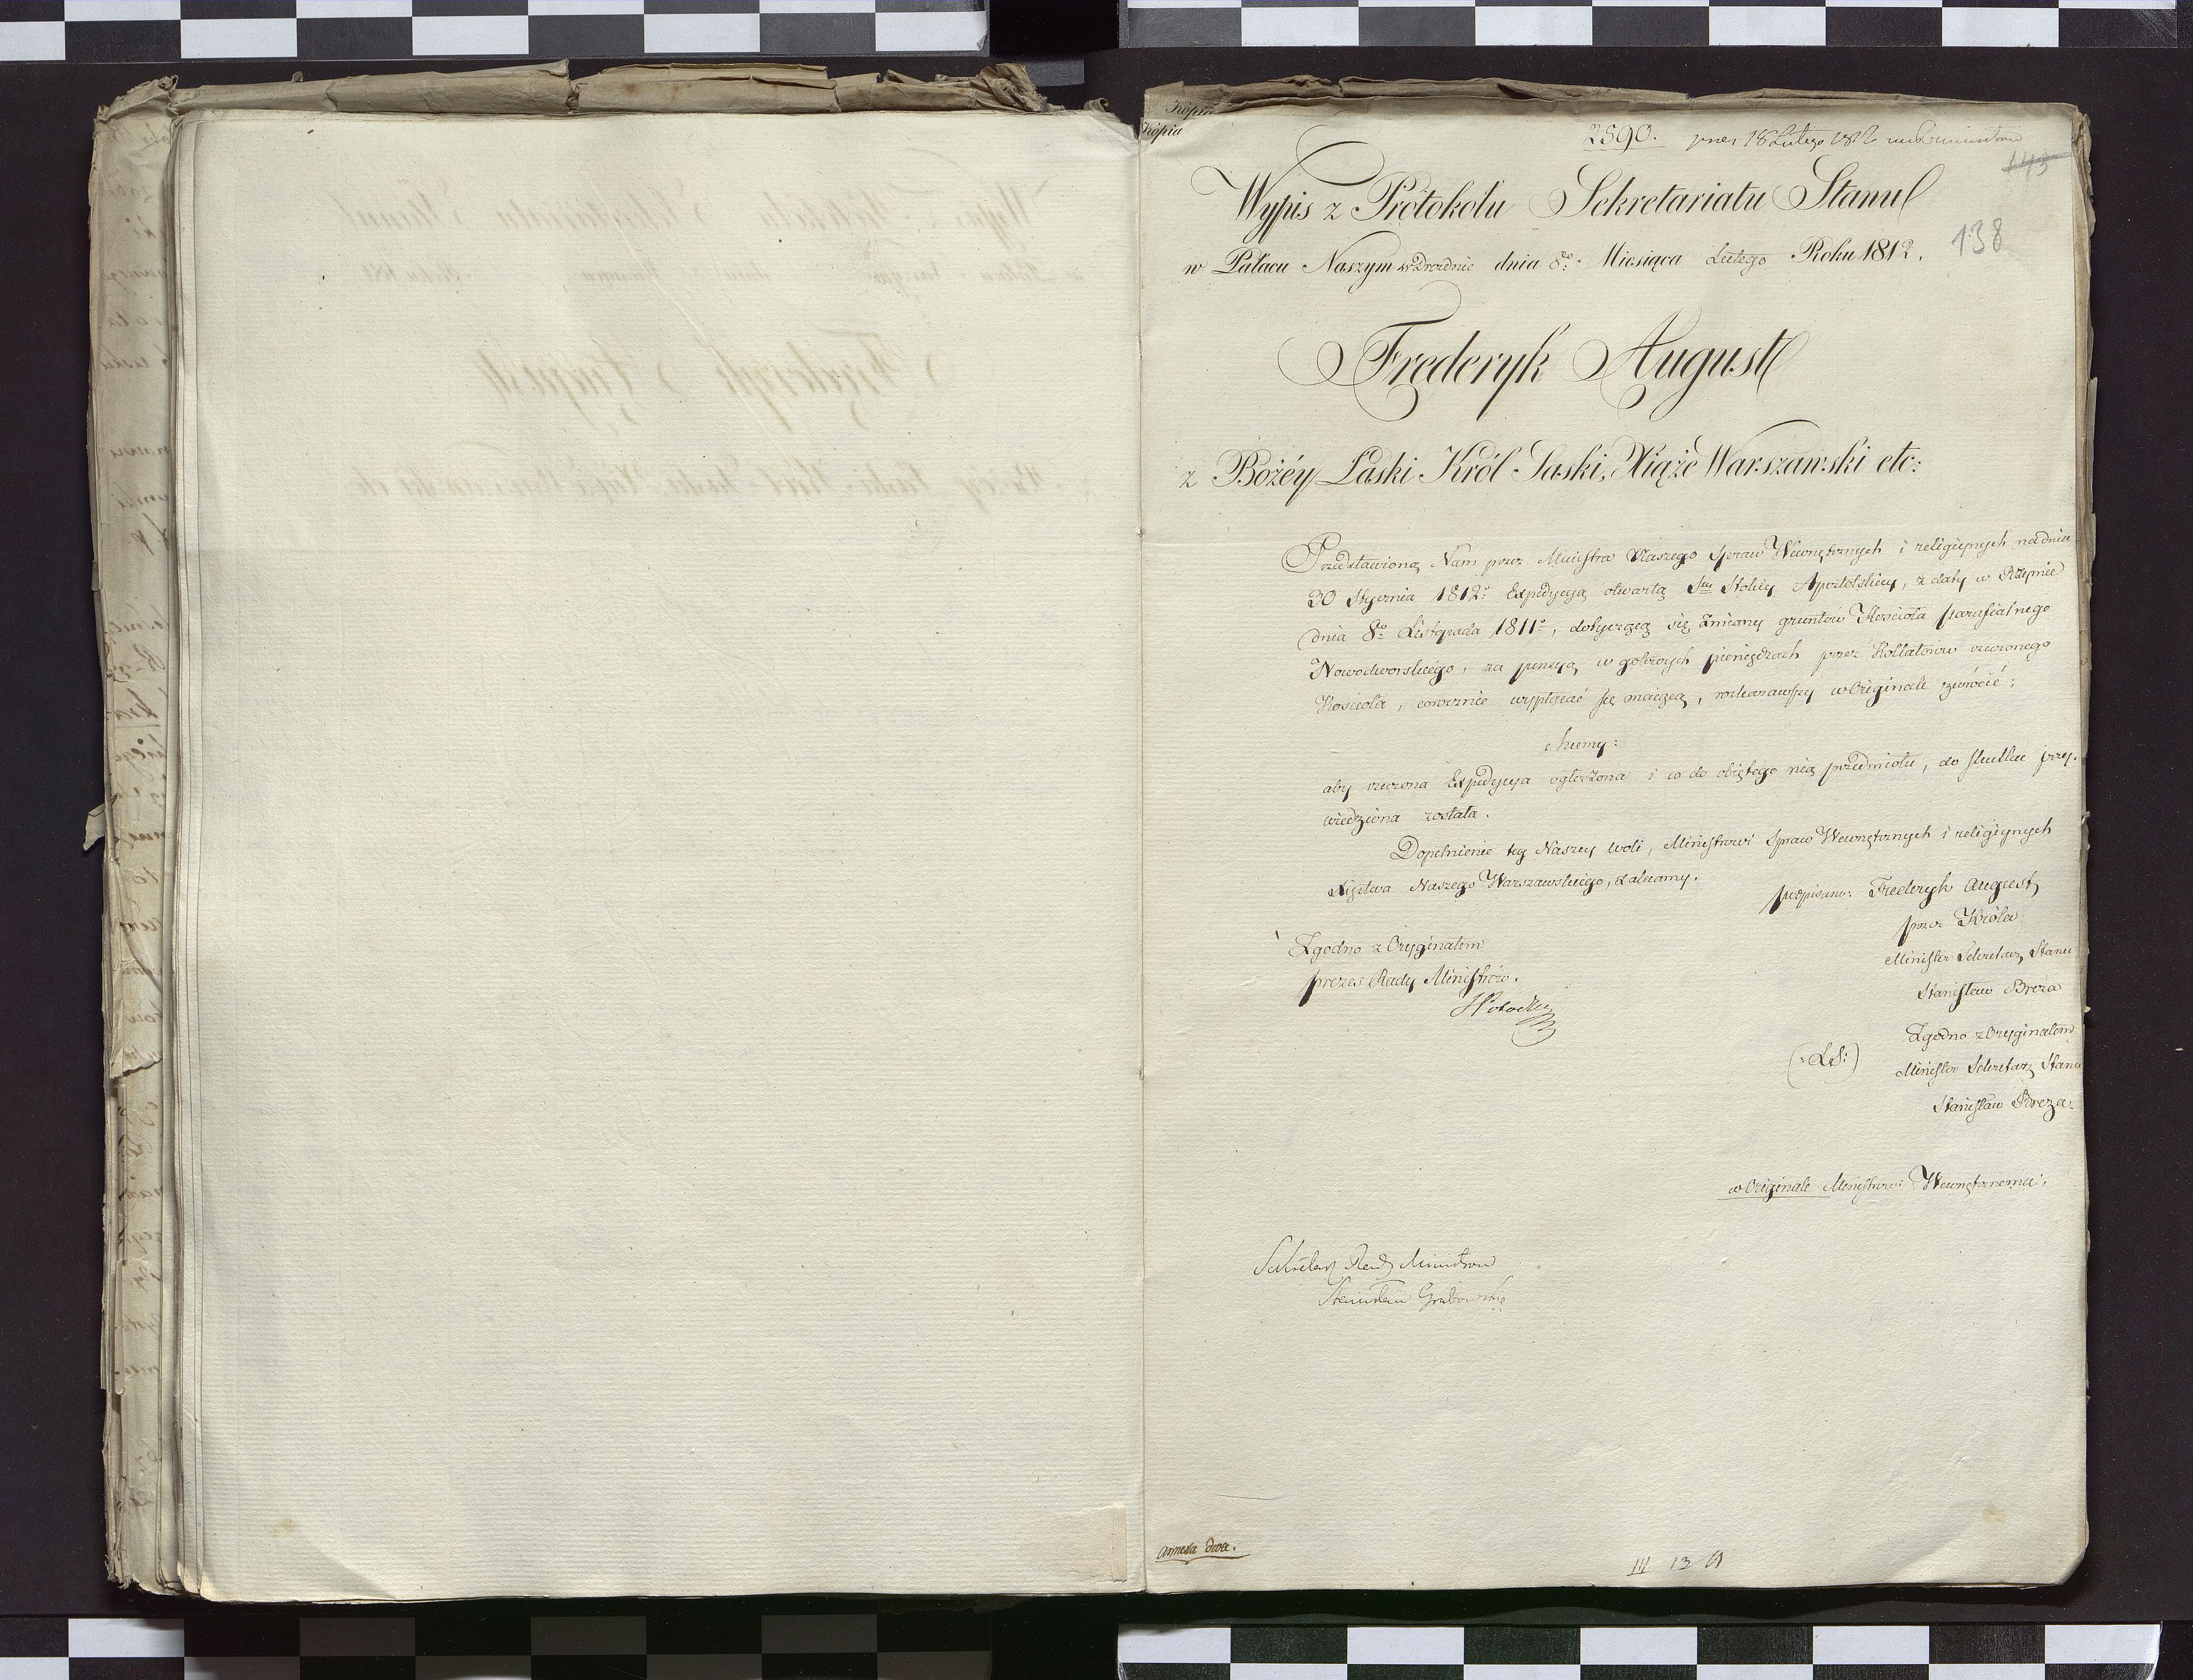 Kopia
Kopia
2590. prez. 18 Lutego 1812
143
138
Wypis z Protokołu Sekretariatu Stanu
w Pałacu Naszym w Dreznie dnia 8go Miesiąca Lutego Roku 1812.
Frederyk August
z Bożéy Łaski Król Saski, Xiąże Warszawski etc:
Przedstawioną Nam przez Ministra Naszego Spraw Wewnętrznych i religiynych na dniu
30 Stycznia 1812o Expedycyą otwartą Stey Stolicy Apostolskiey, z daty w Rzymie
dnia 8go Listopada 1811o, dotyczącą się zmiany gruntów Kościoła parafialnego
Nowodworskiego, za pensyą w gotowych pieniędzach przez Kollatorów rzeczonego
Kościoła, corocznie wypłacać się maiącą, rozkazawszy w Originale zwrócić;
chcemy:
aby rzeczona Expedycya ogłoszona i co do obiętego nią przedmiotu, do skutku przy-
wiedziona została.
Dopełnienie tey Naszey woli, Ministrowi Spraw Wewnętrznych i religiynych
Xięstwa Naszego Warszawskiego, zalecamy.
podpisano: Frederyk August
przez Króla
Minister Sekretarz Stanu
Stanisław Breza
Zgodno z Oryginałem
prezes Rady Ministrów.
SPotocki
(:LS:)
Zgodno z Oryginałem
Minister Sekretarz Stanu
Stanisław Breza.
w Originale Ministrowi Wewnętrznemu.
Sekretarz Rady Ministrow
Stanisław Grabowski
annexa dwa.
III 13